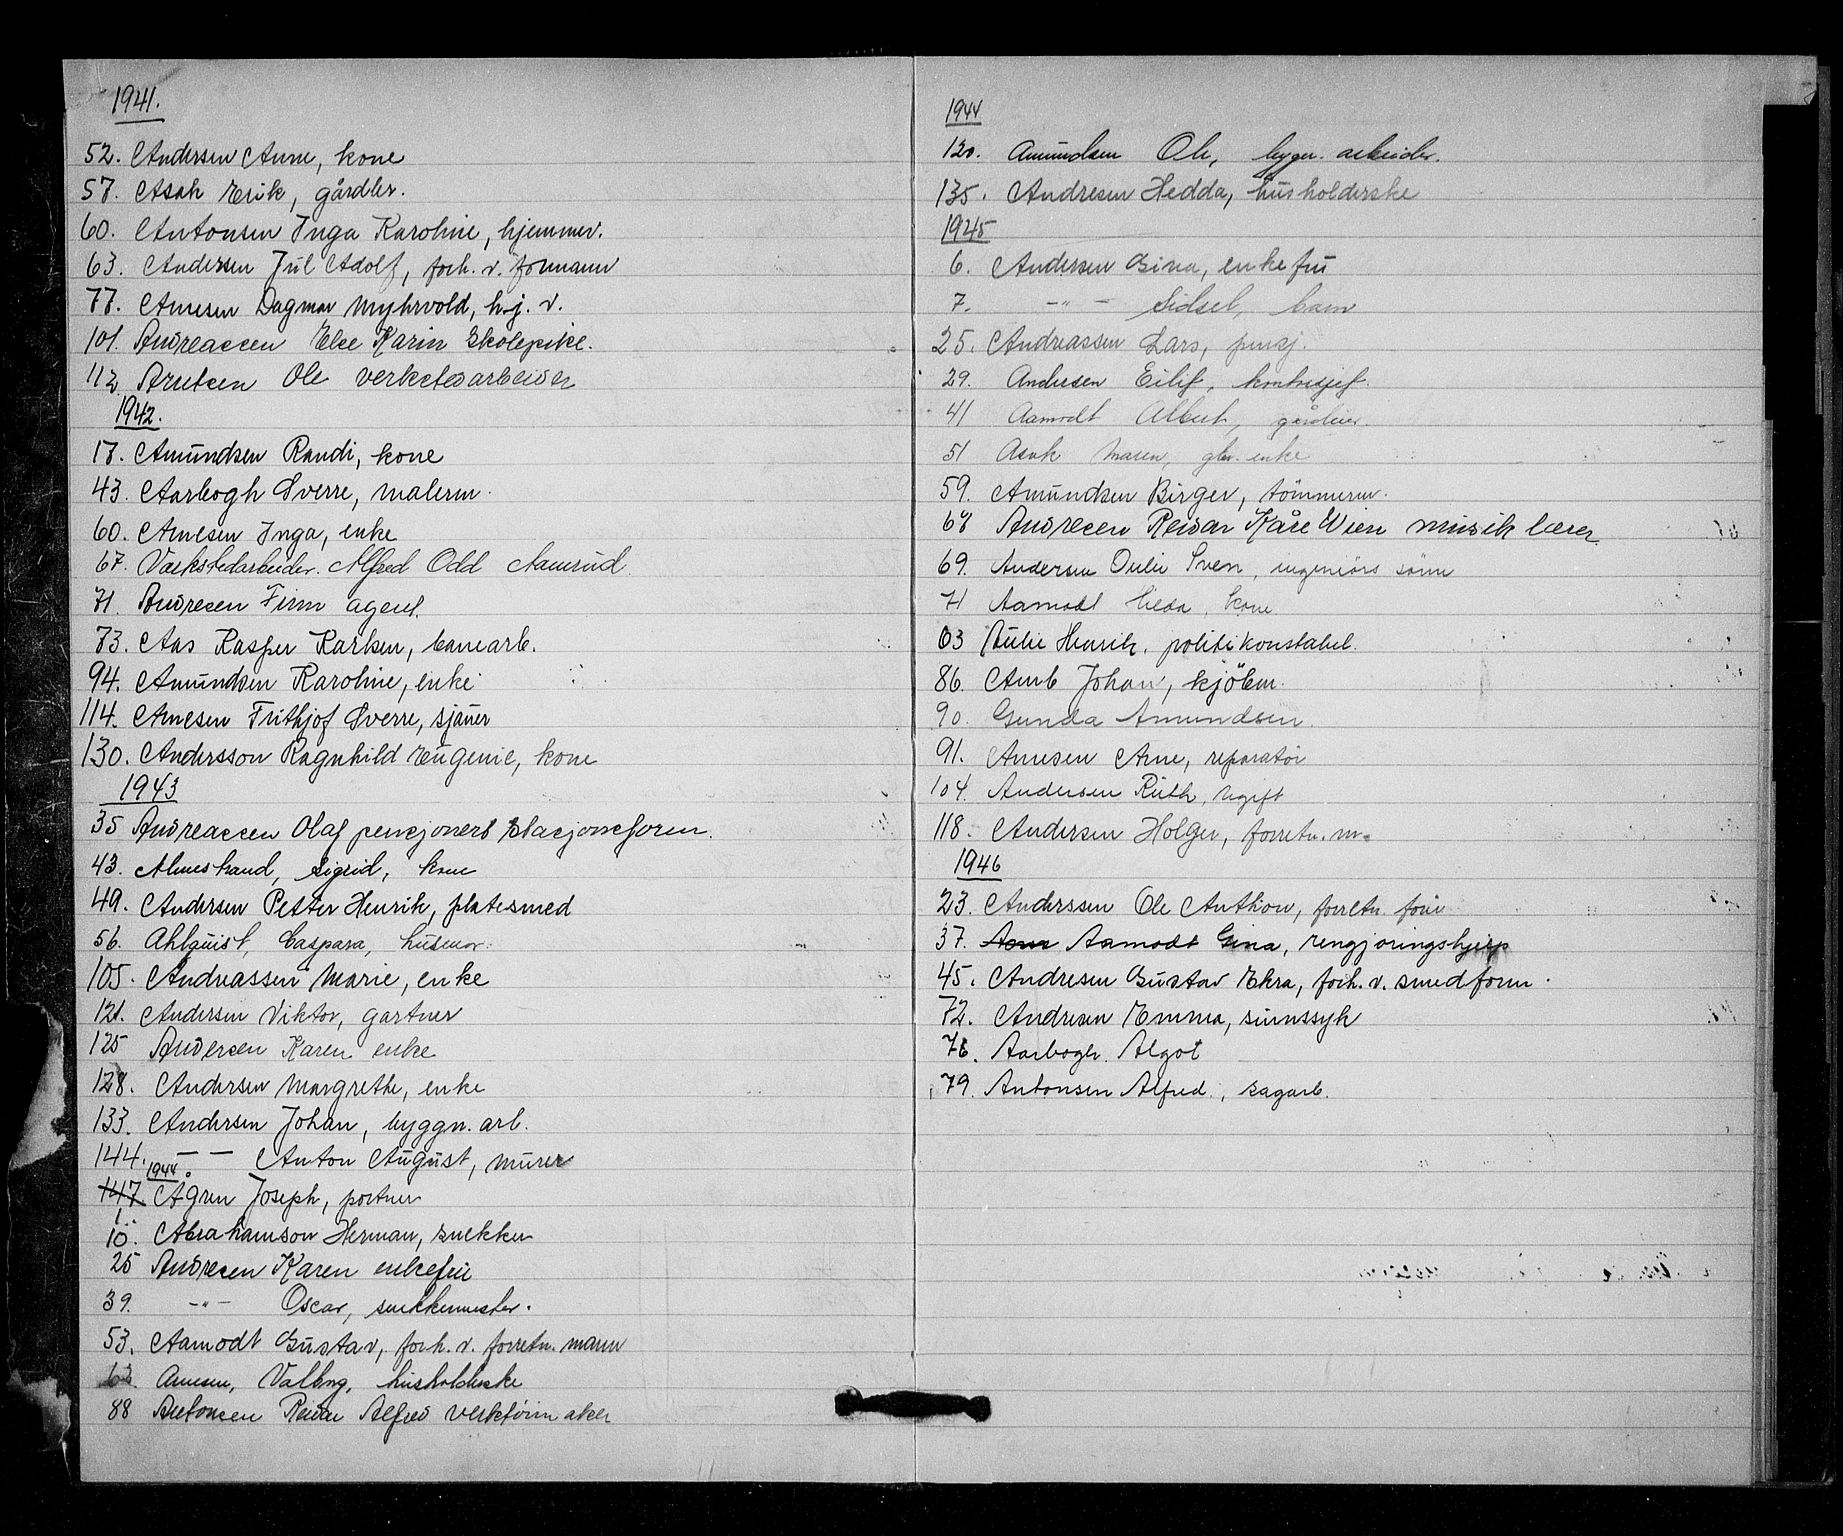 1941.
52. Andersen Anne, kone
57. Asak Erik, gårdbr.
60. Antonsen Inga Karoline, hjemmev.
63. Andersen Jul Adolf, forh. v. formann
77. Arnesen Dagmar Myhrvold, hj. v.
101. Andreassen Else Karin Skolepike.
112 Arntsen Ole verkstedarbeider
1942.
17. Amundsen Randi, kone
43. Aarbogh Sverre, malerm.
60. Arnesen Inga, enke
67. Værkstedarbeider. Alfred Odd Aamrud
71. Andresen Finn agent.
73. Aas Kasper Karlsen, banearb.
94. Amundsen Karoline, enke
114. Arnesen Frithjof Sverre, sjauer
130. Andersson Ragnhild Eugenie, kone
1943
35 Andreassen Olaf pensjonert stasjonsform.
43. Almestrand, Sigrid, kone
49. Andersen Petter Henrik, platesmed
56. Ahlquist, Caspara, husmor.
105. Andreassen Marie, enke
121. Andersen Viktor, gartner
125 Andersen Karen enke
128. Andersen Margrethe, enke
133. Andersen Johan, byggn. arb.
144. — — Anton August, murer
1944.
147 Ågren Joseph, portner
1.
10. Abrahamson Herman, snekker
25 Andresen Karen enkefru
39. -"- Oscar, snekkermester.
53. Aamodt Gustav, forh. v. forretn. mann
62 Arnesen, Valborg, husholderske
88 Antonsen Reidar Alfred
1944
120. Amundsen Ole, bygn. arbeider.
135. Andresen Hedda, husholderske
1945
6. Andersen Gina, enkefru
7. -"- Sidsel, barn
25. Andreassen Lars, pensj.
29. Andersen Eilif, kontorsjef.
41 Aamodt Albert, gårdeier.
51 Asak Maren, gbr. enke
59. Amundsen Birger, tömmerm.
68 Andresen Reidar Kåre Wien musik lærer
69. Andersen Sven, ingeniörs sönn
71 Aamodt Hilda, kone
83 Aulie Henrik, politikonstabel.
86. Amb Johan, kjöbm.
90. Gunda Amundsen.
91. Arnesen Arne, reparatör
104. Andersen Ruth, ugift
118. Andersen Holger, forretn. m.
1946
23. Anderssen Ole Anthon, forretn. före
37. Aamodt Gina, rengjøringshjelp
45. Andresen Gustav Ekra, forh. v. smedform.
72. Andresen Emma, sinnssyk
76. Aarbogh. Algot
79. Antonsen Alfred, sagarb.